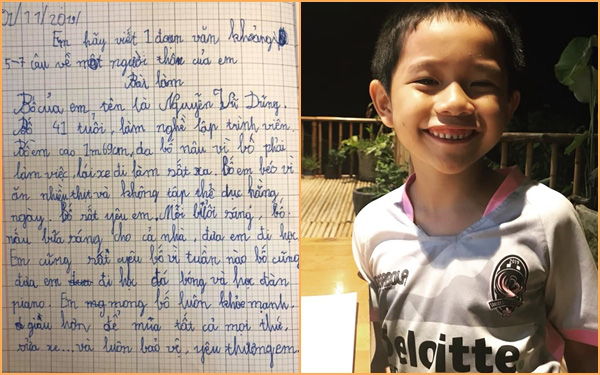 01/11/2019
Em hãy viết 1 đoạn văn khoảng
5-7 câu về một người thân của em
Bài làm
Bố của em tên là Nguyễn Vũ Dũng.
Bố 41 tuổi, làm nghề lập trình viên.
Bố em cao 1m69cm, da bố nâu vì bố phải
làm việc, lái xe đi làm rất xa. bố em béo vì
ăn nhiều thứ và không tập thể dục hằng
ngày. bố rất yêu em. Mỗi buổi sáng, bố
nấu bữa sáng cho cả nhà, đưa em đi học.
Em cũng rất yêu bố vì tuần nào bố cũng
đưa em đi học đá bóng và học đàn
piano. Em mong bố luôn khỏe mạnh,
giàu hơn để mua tất cả mọi thứ,
sửa xe... và luôn bảo vệ, yêu thương em.
Deloitte